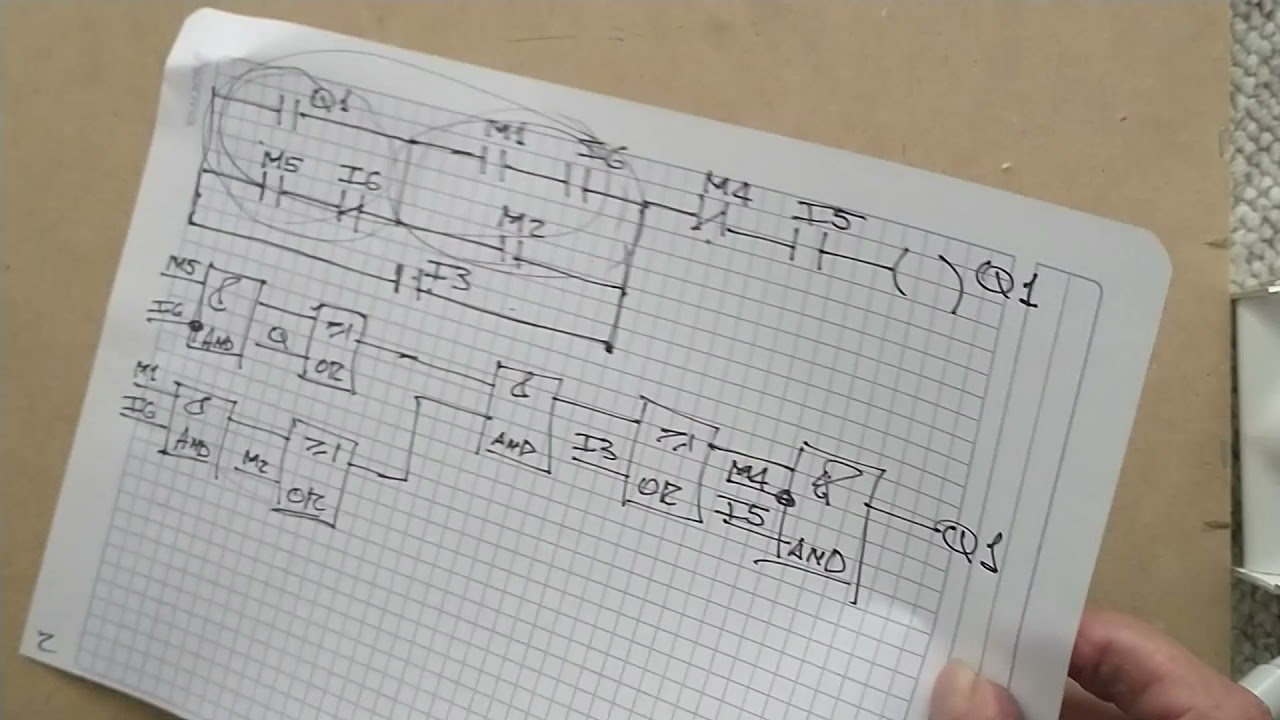 Q1
M1
I6
M5
I6
M4
I5
M2
Q1
I3
M5
I6
&
AND
Q
≥1
OR
M1
I6
&
AND
M2
≥1
OR
&
AND
I3
≥1
OR
M4
I5
&
AND
Q1
2